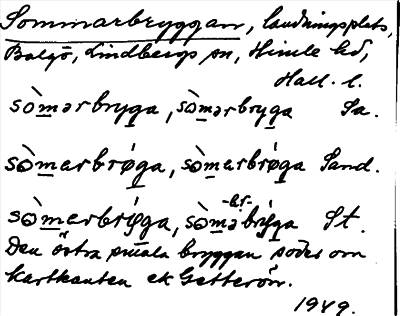 Sommarbryggan, landningsplats,
Balgö, Lindbergs sn, Himle hd,
Hall. l.
sòmarbryga, sòmərbryga Sa.
sòmarbrǿga, sòmarbrǿga Sand.
sòmarbrýga, sòmə -ər- brýga St.
Den östra smala bryggan söder om
kartkanten ek Getterön.
1949.